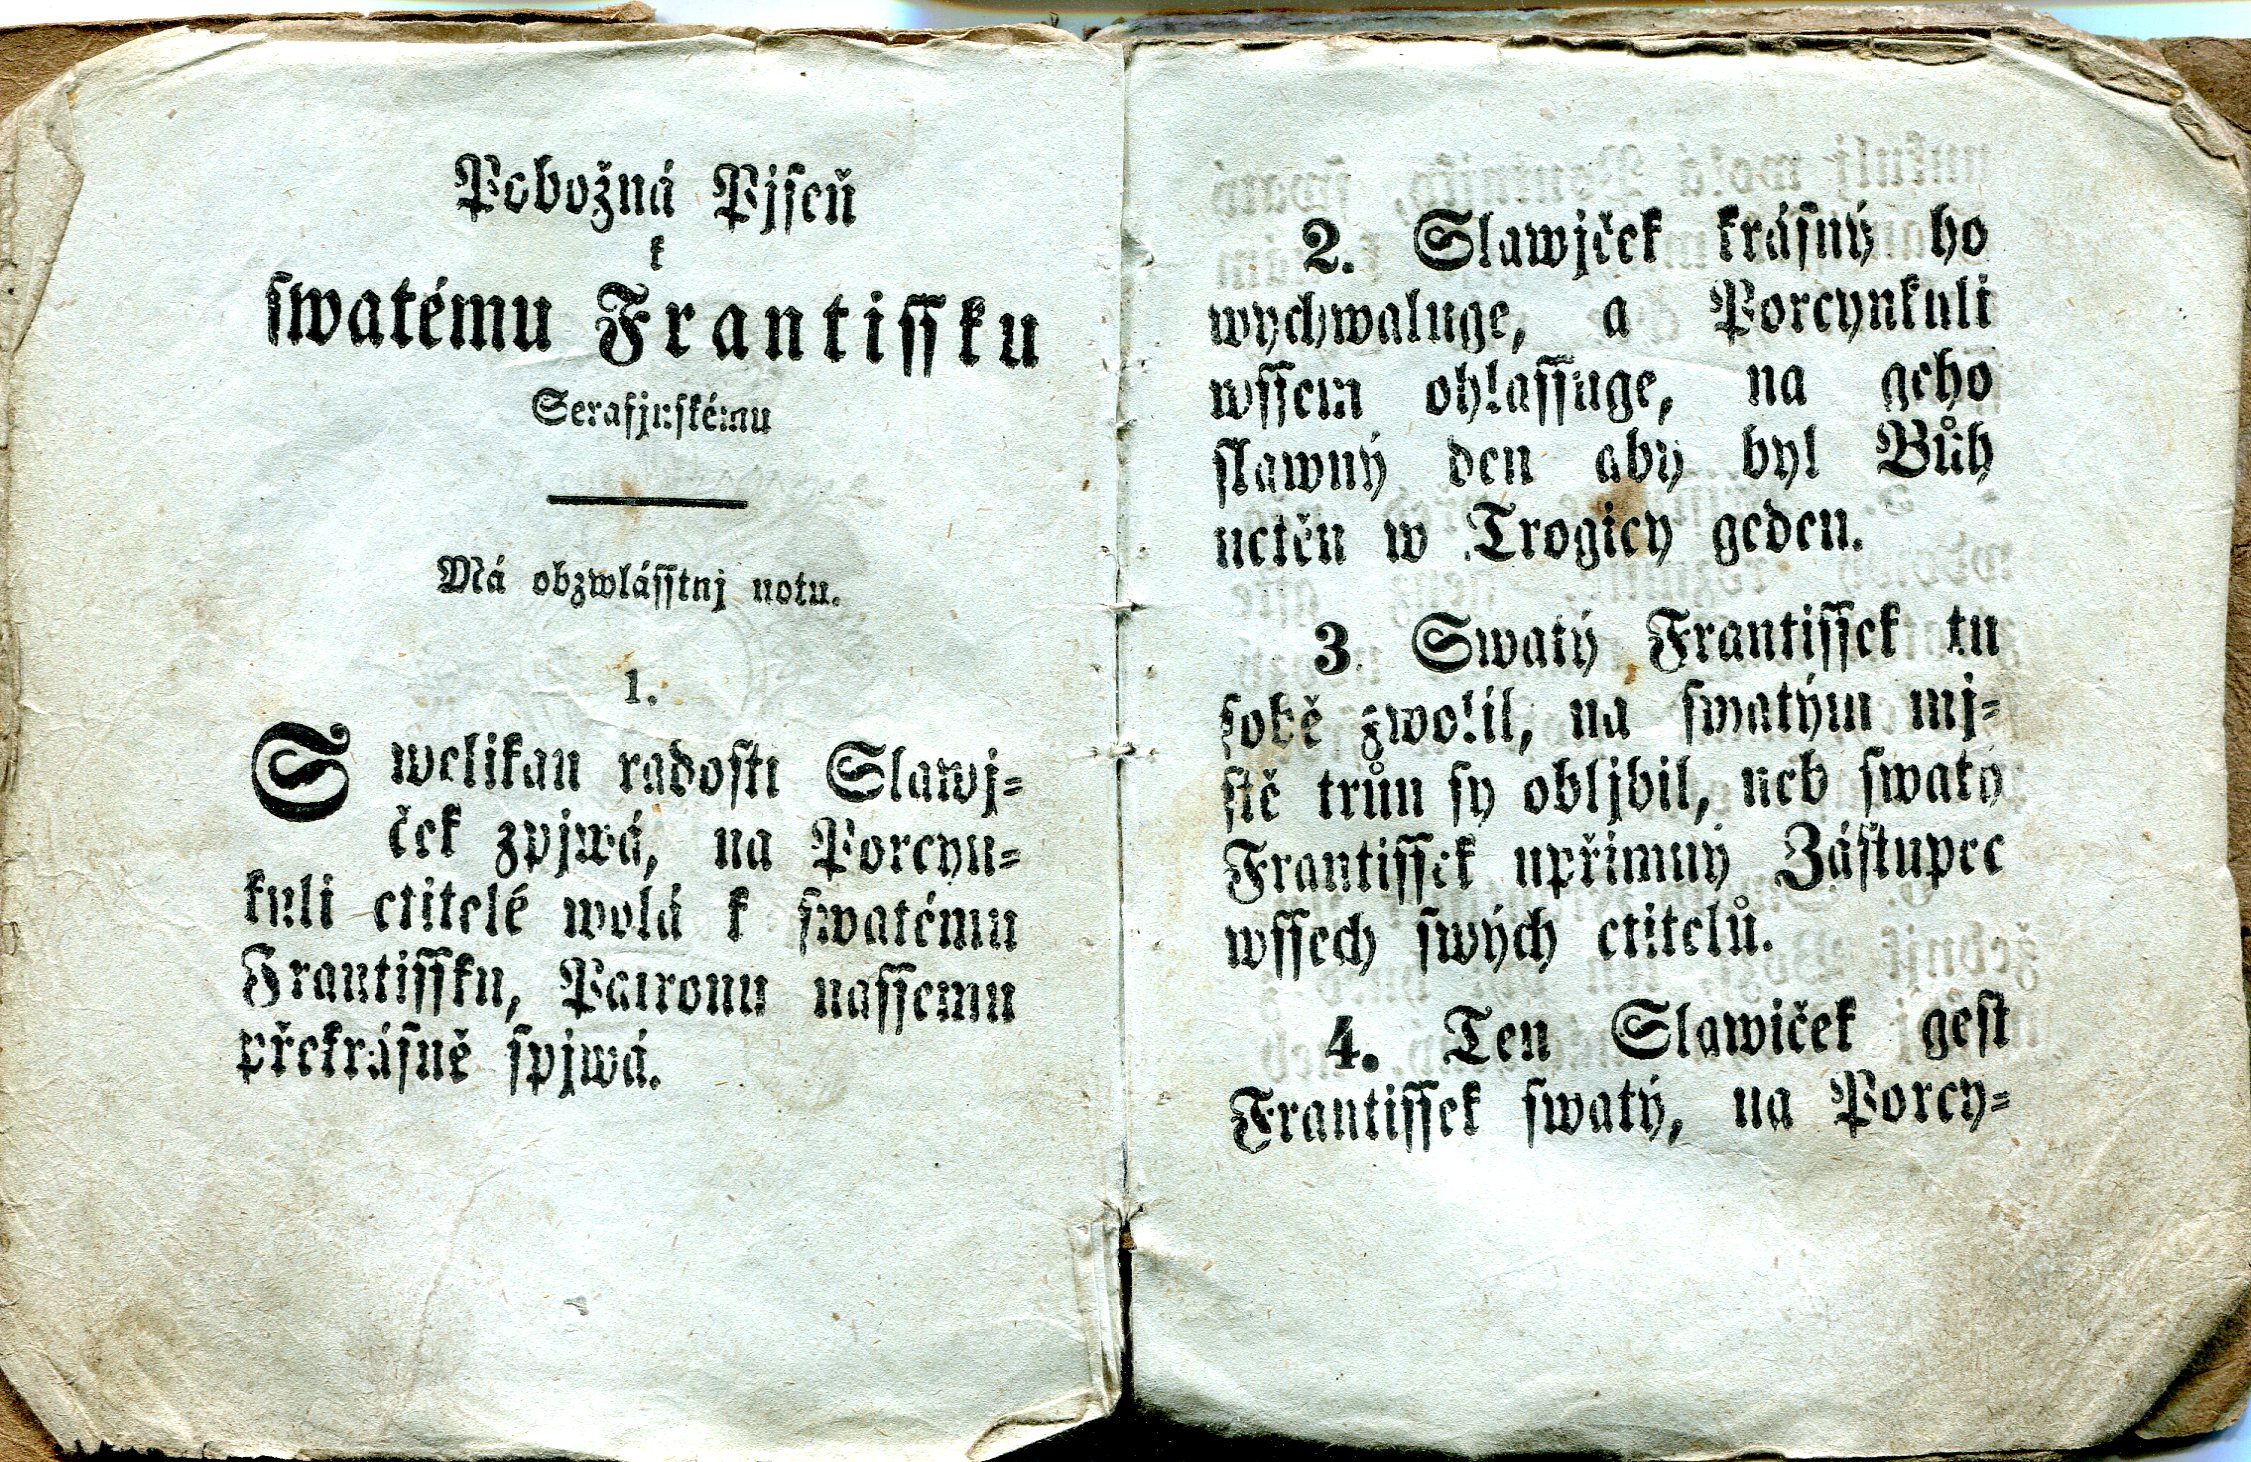 Pobožná Pjseň
k
swatému Frantissku
Serafjnskému
Má obzwlásstnj notu.
1.
S welikau radosti Slawj=
ček zpjwá, na Porcyn=
kuli ctitelé wolá k swatému
Frantissku, Patronu nassemu
překrásně spjwá.
2. Slawjček krásný ho
wychwaluge, a Porcynkuli
wssem ohlassuge, na geho
slawný den aby byl Bůh
uctěn w Trogicy geden.
3. Swatý Frantissek tu
sobě zwolil, na swatým mj=
stě trůn sy obljbil, neb swatý
Frantissek upřimný Zástupce
wssech swých ctitelů.
4. Ten Slawiček gest
Frantissek swatý, na Porcy=